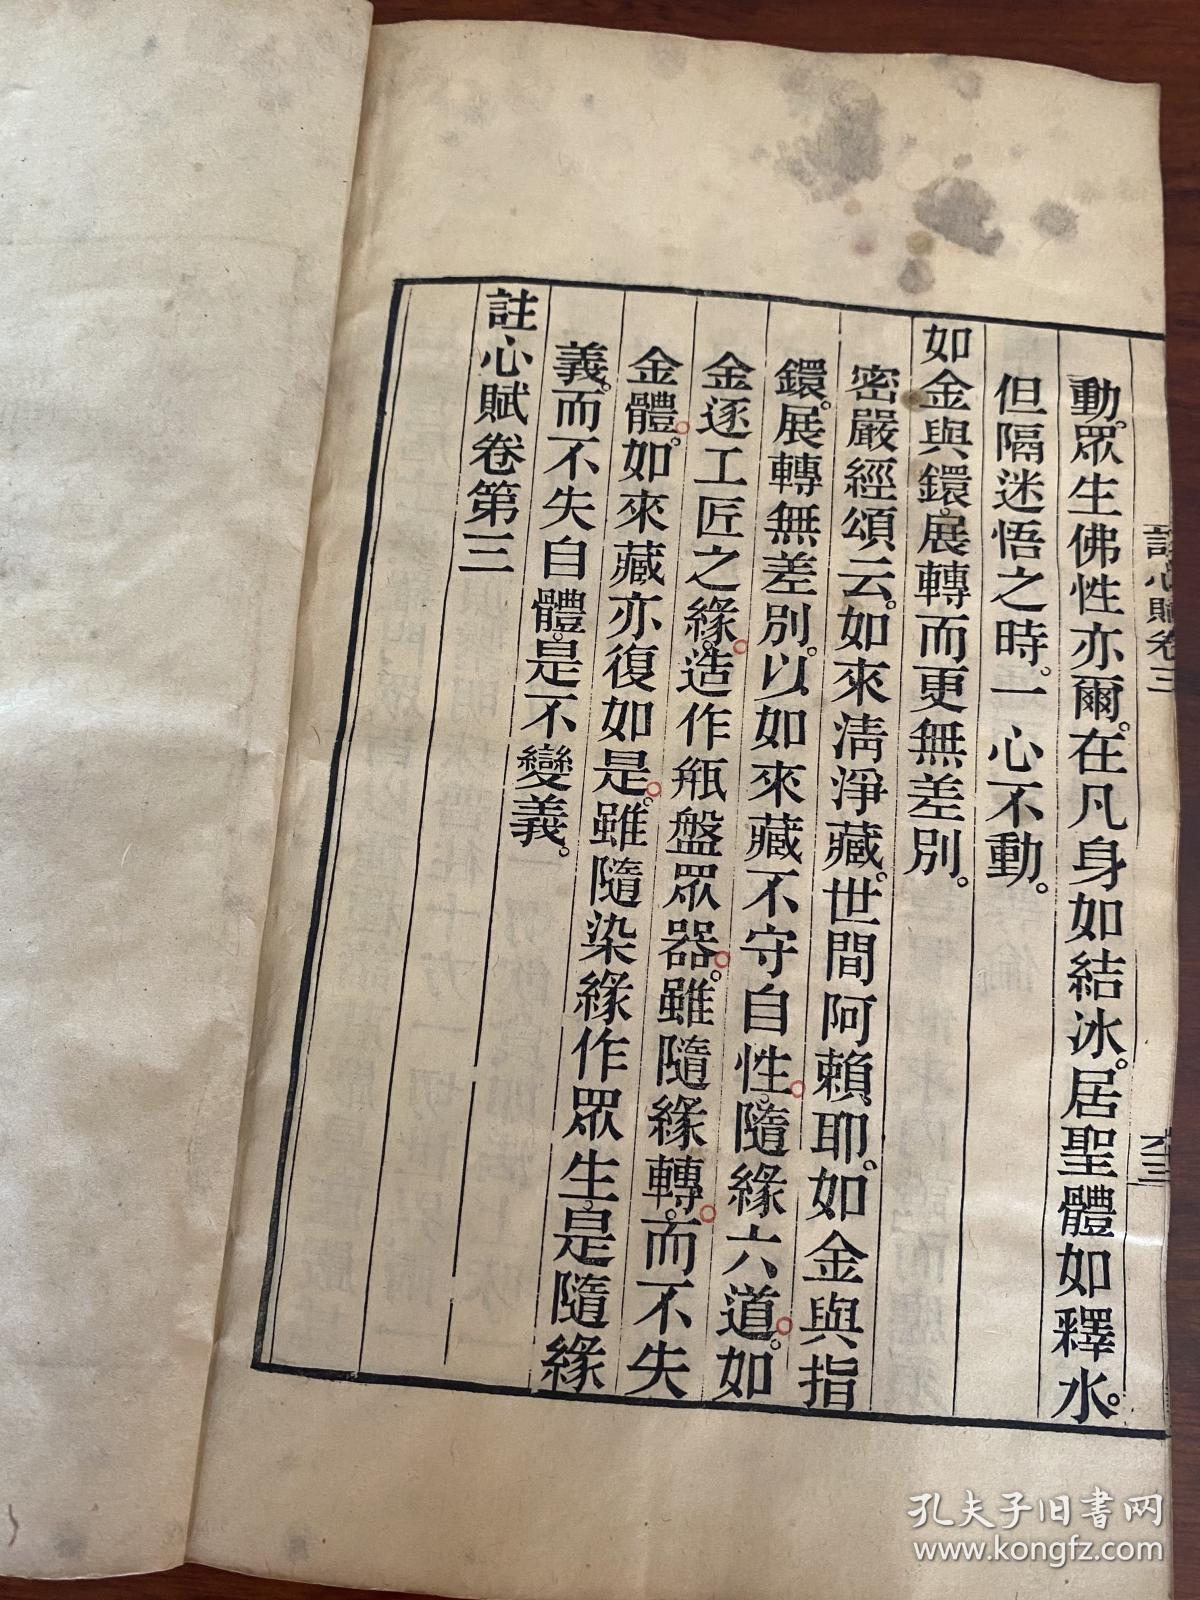 註心賦卷三
六三
動。眾生佛性亦爾。在凡身如結冰。居聖體如釋水。
但隔迷悟之時。一心不動。
如金與鐶。展轉而更無差別。
密嚴經頌云。如來清淨藏。世間阿賴耶。如金與指
鐶。展轉無差別。以如來藏不守自性。隨緣六道。如
金逐工匠之緣。造作缾盤眾器。雖隨緣轉。而不失
金體。如來藏亦復如是。雖隨染緣作眾生。是隨緣
義。而不失自體。是不變義。
註心賦卷第三
孔夫子旧书网
www.kongfz.com